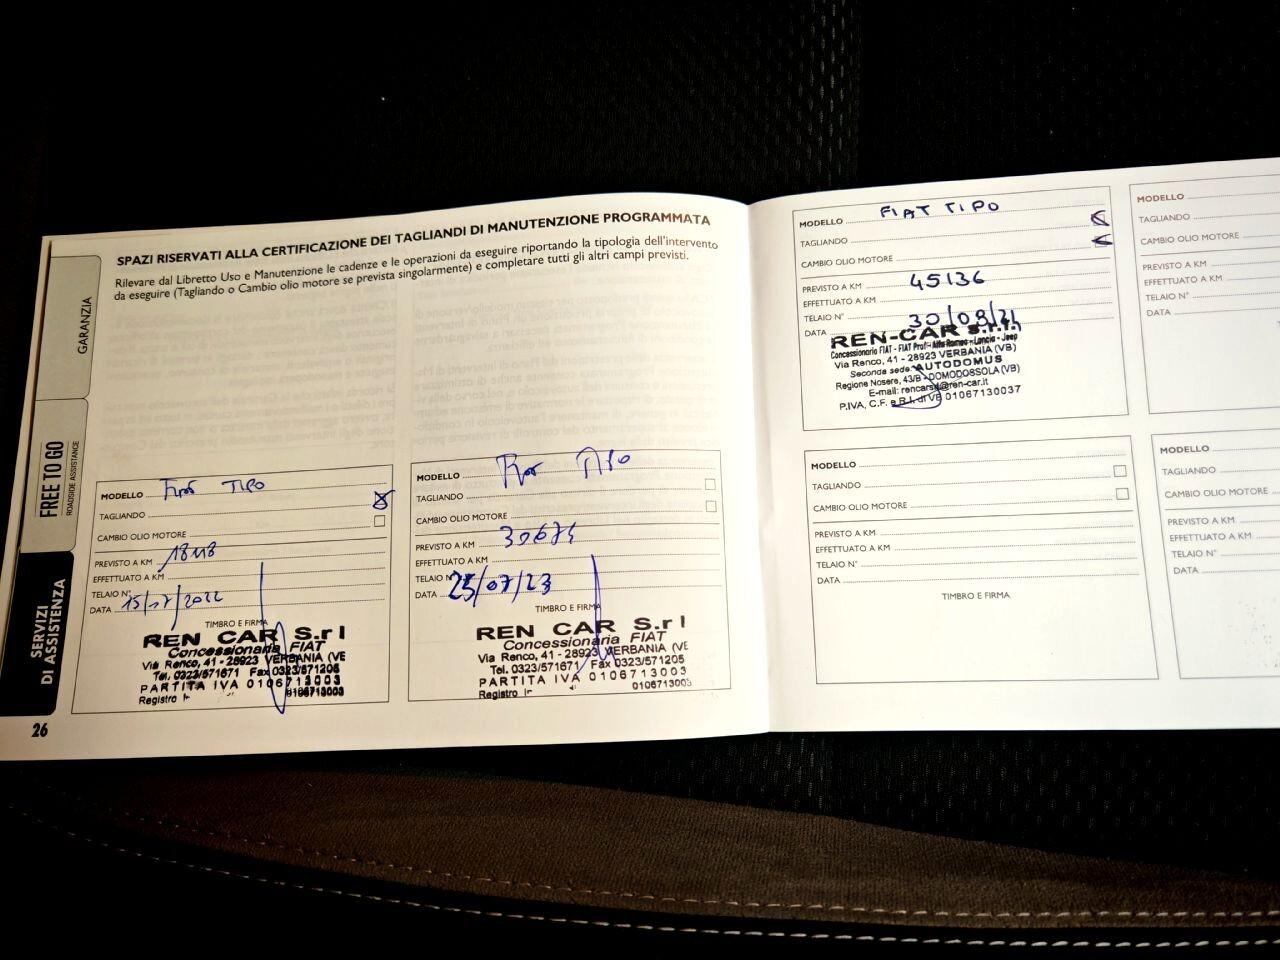 SPAZI RISERVATI ALLA CERTIFICAZIONE DEI TAGLIANDI DI MANUTENZIONE PROGRAMMATA
Rilevare dal Libretto Uso e Manutenzione le cadenze e le operazioni da eseguire riportando la tipologia dell'intervento
da eseguire (Tagliando o Cambio olio motore se prevista singolarmente) e completare tutti gli altri campi previsti.
GARANZIA
FREE TO GO
ROADSIDE ASSISTANCE
SERVIZI
DI ASSISTENZA
MODELLO TIPO
TAGLIANDO
CAMBIO OLIO MOTORE
PREVISTO A KM
EFFETTUATO A KM
TELAIO N°
DATA 15/17/2022
TIMBRO E FIRMA
REN CAR S.r l
Concessionaria FIAT
Via Renco, 41 - 28923 VERBANIA (VE
Tel. 0323/571671 Fax 0323/571205
PARTITA IVA 0106713003
Registro
0106713003
26
MODELLO
TAGLIANDO
CAMBIO OLIO MOTORE
PREVISTO A KM
EFFETTUATO A KM
TELAIO N°
DATA 25/07/23
TIMBRO E FIRMA
REN CAR S.r l
Concessionaria FIAT
Via Renco, 41 - 28923 VERBANIA (VE
Tel. 0323/571671 Fax 0323/571205
PARTITA IVA 0106713003
Registro
0106713003
MODELLO FIAT TIPO
TAGLIANDO
CAMBIO OLIO MOTORE
PREVISTO A KM
EFFETTUATO A KM 45136
TELAIO N°
DATA
REN-CAR s.r.l.
Concessionario FIAT - FIAT Prof - Alfa Romeo - Lancia - Jeep
Via Renco, 41 - 28923 VERBANIA (VB)
Seconda sede: AUTODOMUS
Regione Nosere, 43/B - DOMODOSSOLA (VB)
E-mail: @ren-car.it
P.IVA, C.F. e R.I. di VB 01067130037
MODELLO
TAGLIANDO
CAMBIO OLIO MOTORE
PREVISTO A KM
EFFETTUATO A KM
TELAIO N°
DATA
TIMBRO E FIRMA
MODELLO
TAGLIANDO
CAMBIO OLIO MOTORE
PREVISTO A KM
EFFETTUATO A KM
TELAIO N°
DATA
MODELLO
TAGLIANDO
CAMBIO OLIO MOTORE
PREVISTO A KM
EFFETTUATO A KM
TELAIO N°
DATA